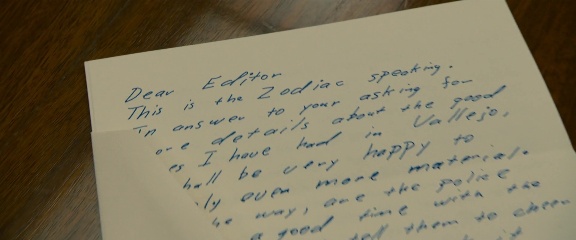 Dear Editor
This is the Zodiac speaking.
In answer to your asking for
ore details about the good
es I have had in Vallejo,
hall be very happy to
ly even more material.
he way, are the police
a good time with the
tell them to cheer